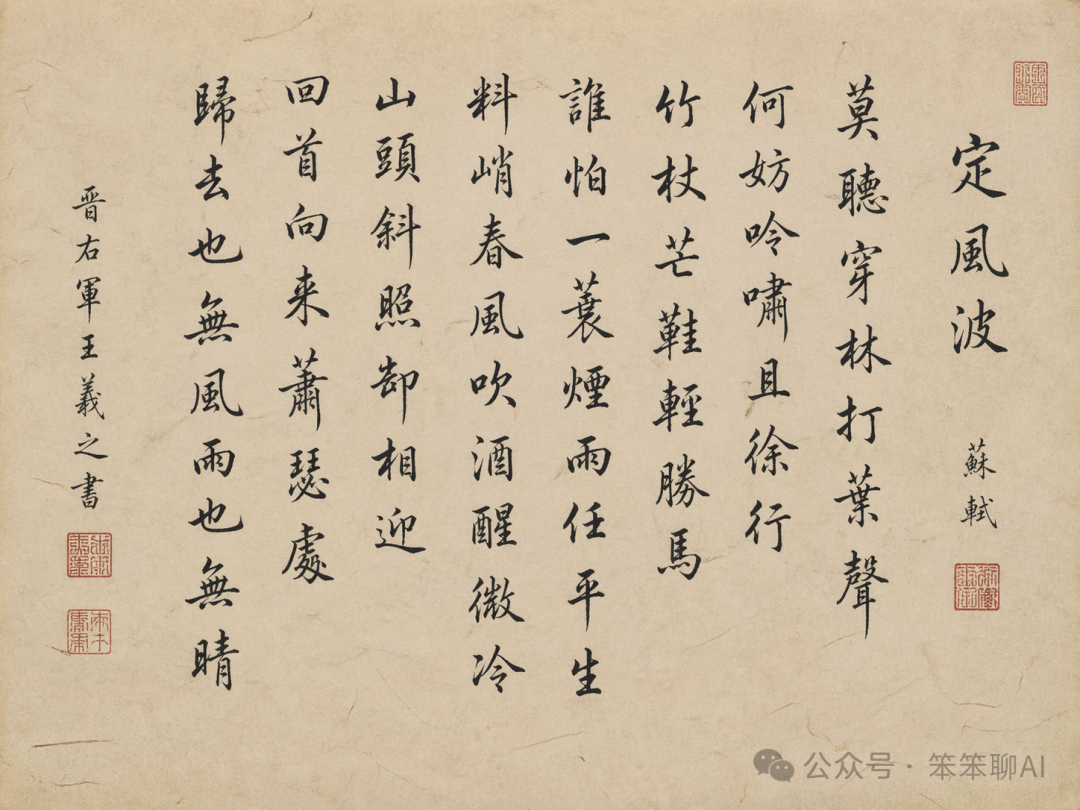 定風波
蘇軾
莫聽穿林打葉聲
何妨吟嘯且徐行
竹杖芒鞋輕勝馬
誰怕一蓑煙雨任平生
料峭春風吹酒醒微冷
山頭斜照卻相迎
回首向来蕭瑟處
歸去也無風雨也無晴
晋右軍王羲之書
公众号 · 笨笨聊AI